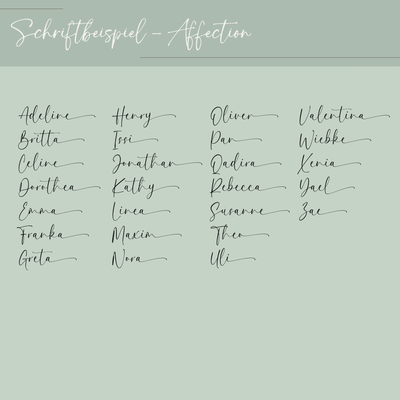 Schriftbeispiel - Affection
Adeline
Britta
Celine
Dorothea
Emma
Franka
Greta
Henry
Issi
Jonathan
Kathy
Linea
Maxim
Nora
Oliver
Pan
Qadira
Rebecca
Susanne
Theo
Uli
Valentina
Wiebke
Xenia
Yael
Zae